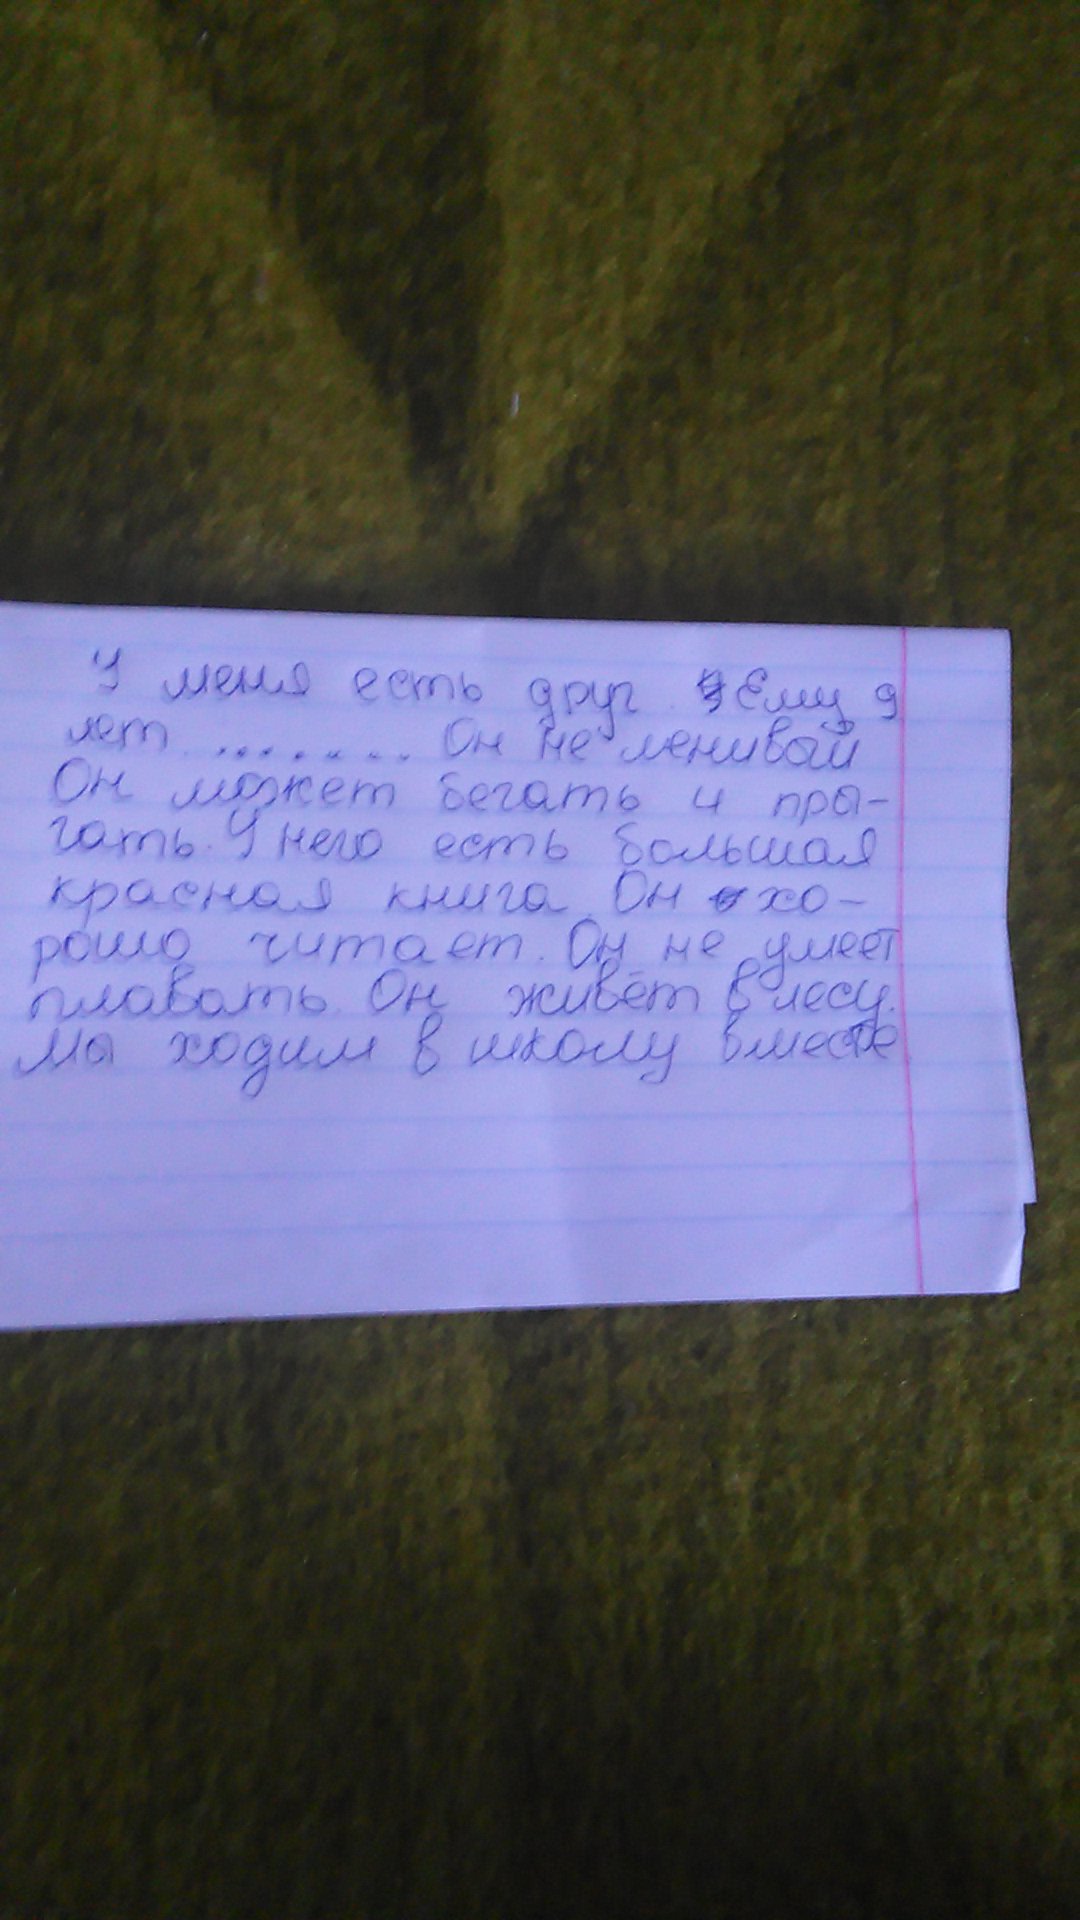 У меня есть друг. Ему 9
лет ........ Он не ленивый
Он может бегать и пры-
гать. У него есть большая
красная книга. Он хо-
рошо читает. Он не умеет
плавать. Он живёт в лесу.
Мы ходим в школу вместе